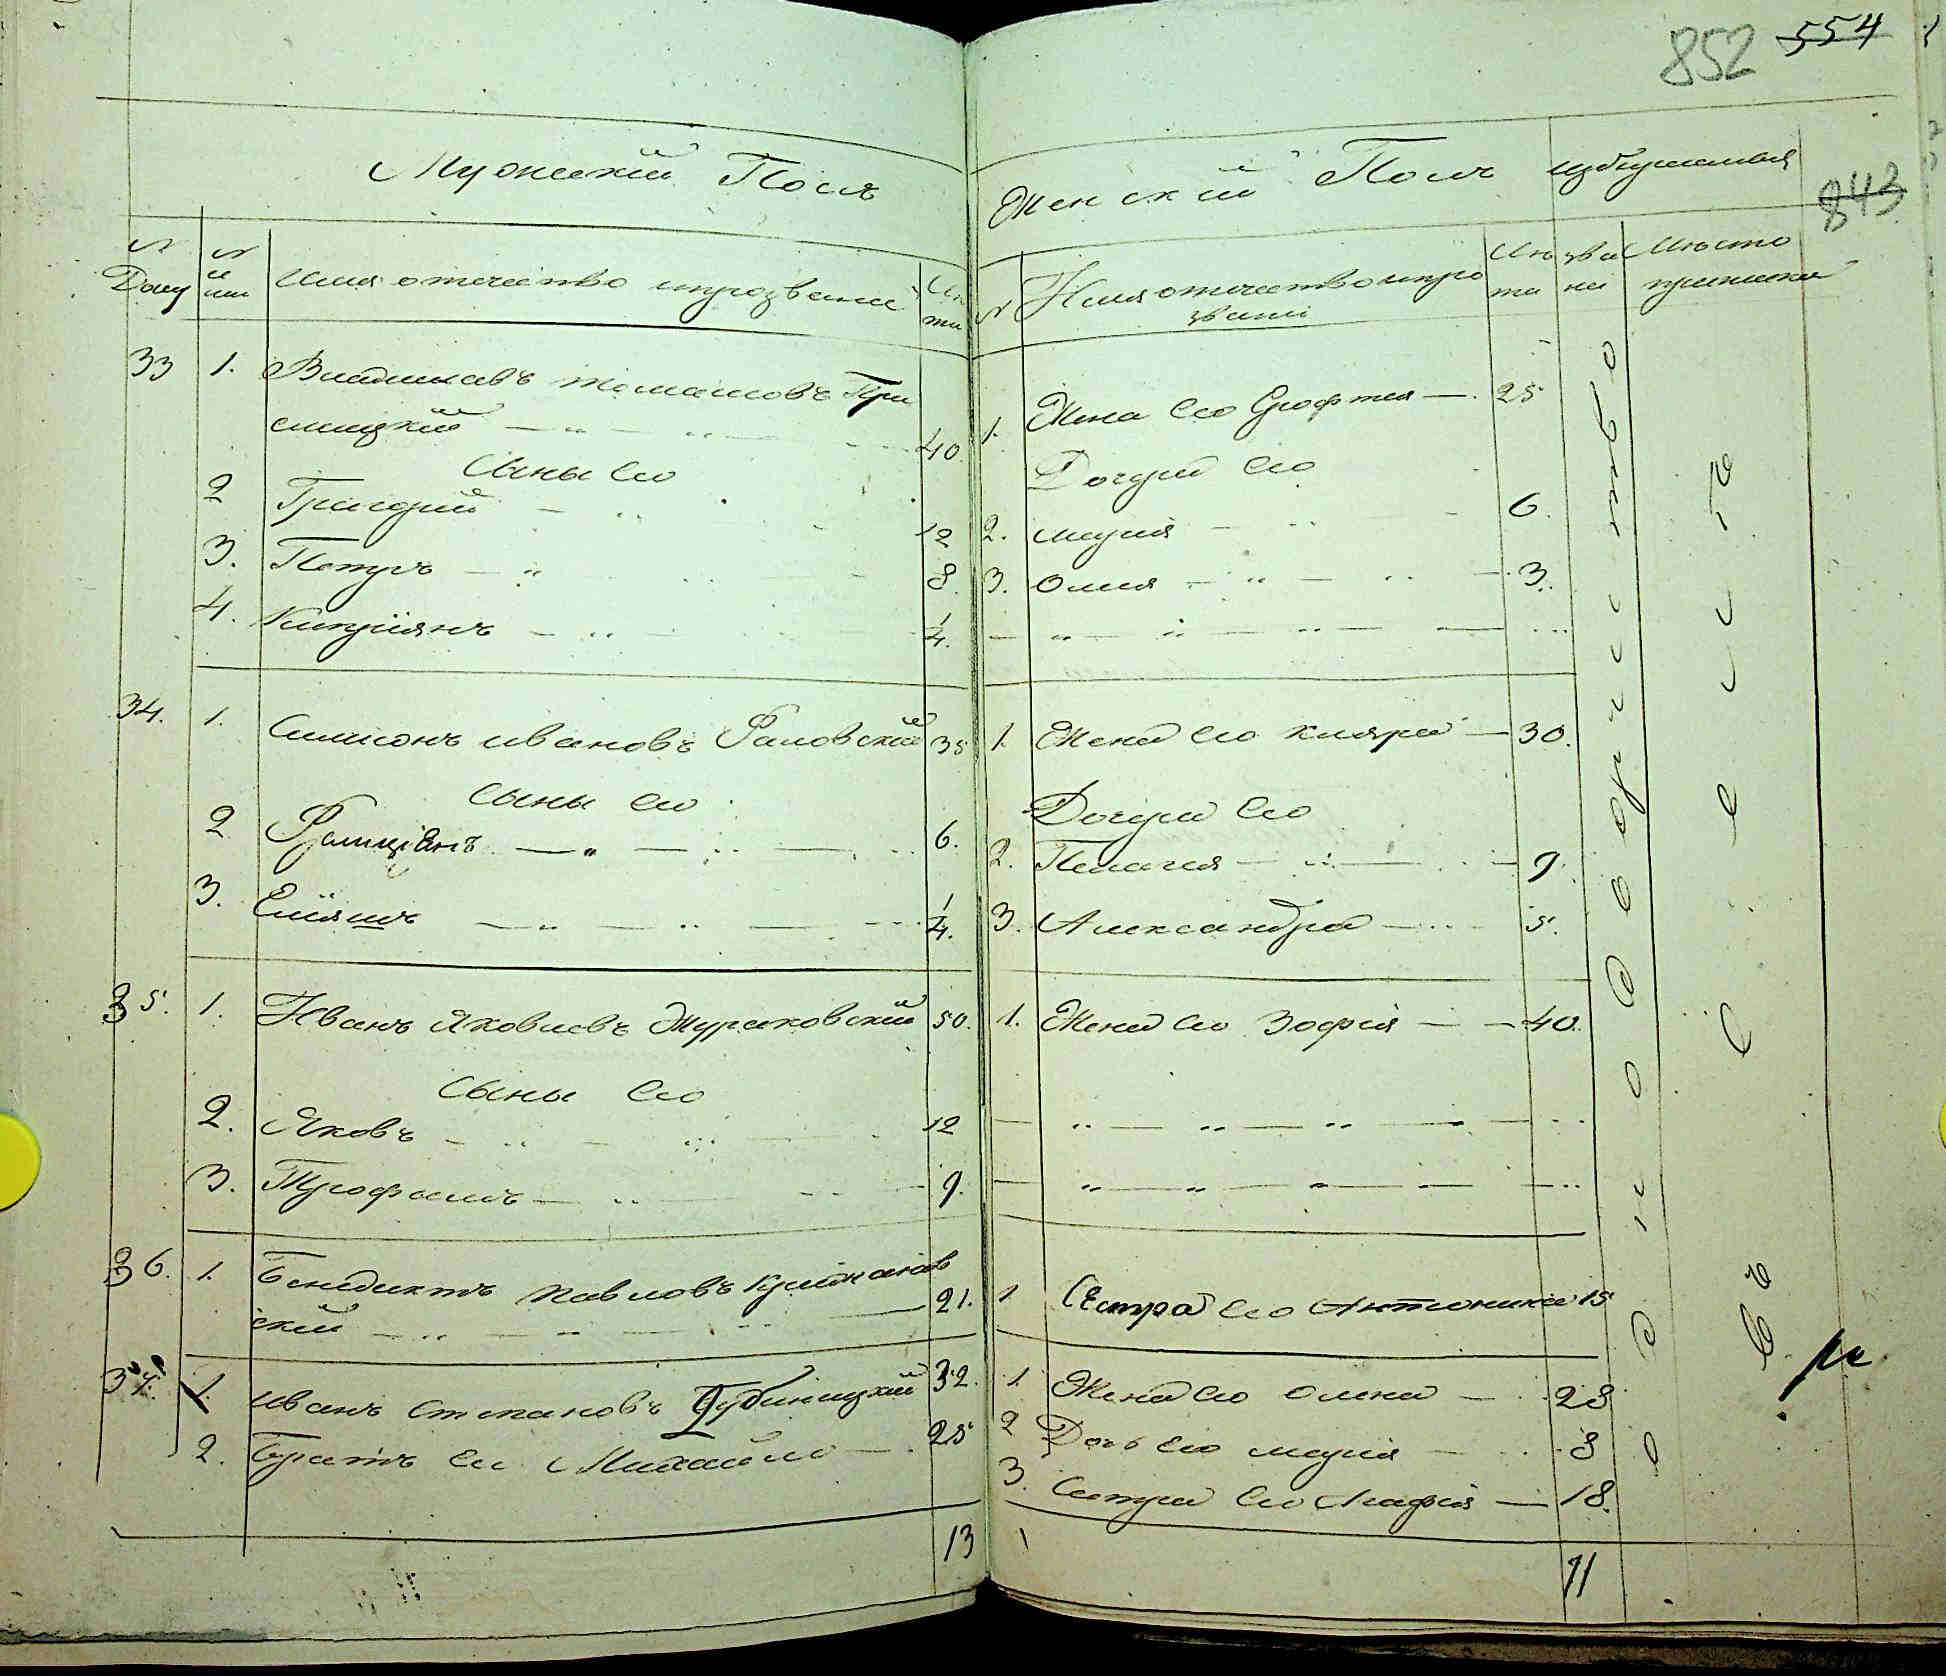 852 554
843
Мужескій Полъ
№ Дому
№ Имя отечество и прозвеніе Лѣта
33 1. Владиславъ Томашовъ При
смицкій 40.
Сыны Его
2 Григорій 12
3. Петръ 8.
4. Кипріянъ 1/4.
34. 1. Симионъ Ивановъ Фаловскій 35
Сыны Его
2 Фелиціянъ 6.
3. Еліяшъ 1/4.
35. 1. Иванъ Яковлевъ Жураковскій 50.
Сыны Его
2. Яковъ 12
3. Трофимъ 9.
36. 1. Бенедиктъ Павловъ
скій 21.
34. 1. Иванъ Степановъ Дубиницкій 32.
2. Братъ Ег Михайло 25
13
Женскій Полъ
№ Имя отечество и про
звані Лѣта Званi Мѣсто
приписки
1. Жена Его Ерофтея 25
Дочери Его
2. Марія 6.
3. Олия 3.
1. Жена Его Кляра 30.
Дочери Его
2. Пелагея 9
3. Александра 5.
1. Жена Его Зофія 40.
1 Сестра Его Антонина 15
1. Жена Его Олена 28
2 Дочь Его Марія 8
3. Сестра Его Агафія 18.
11